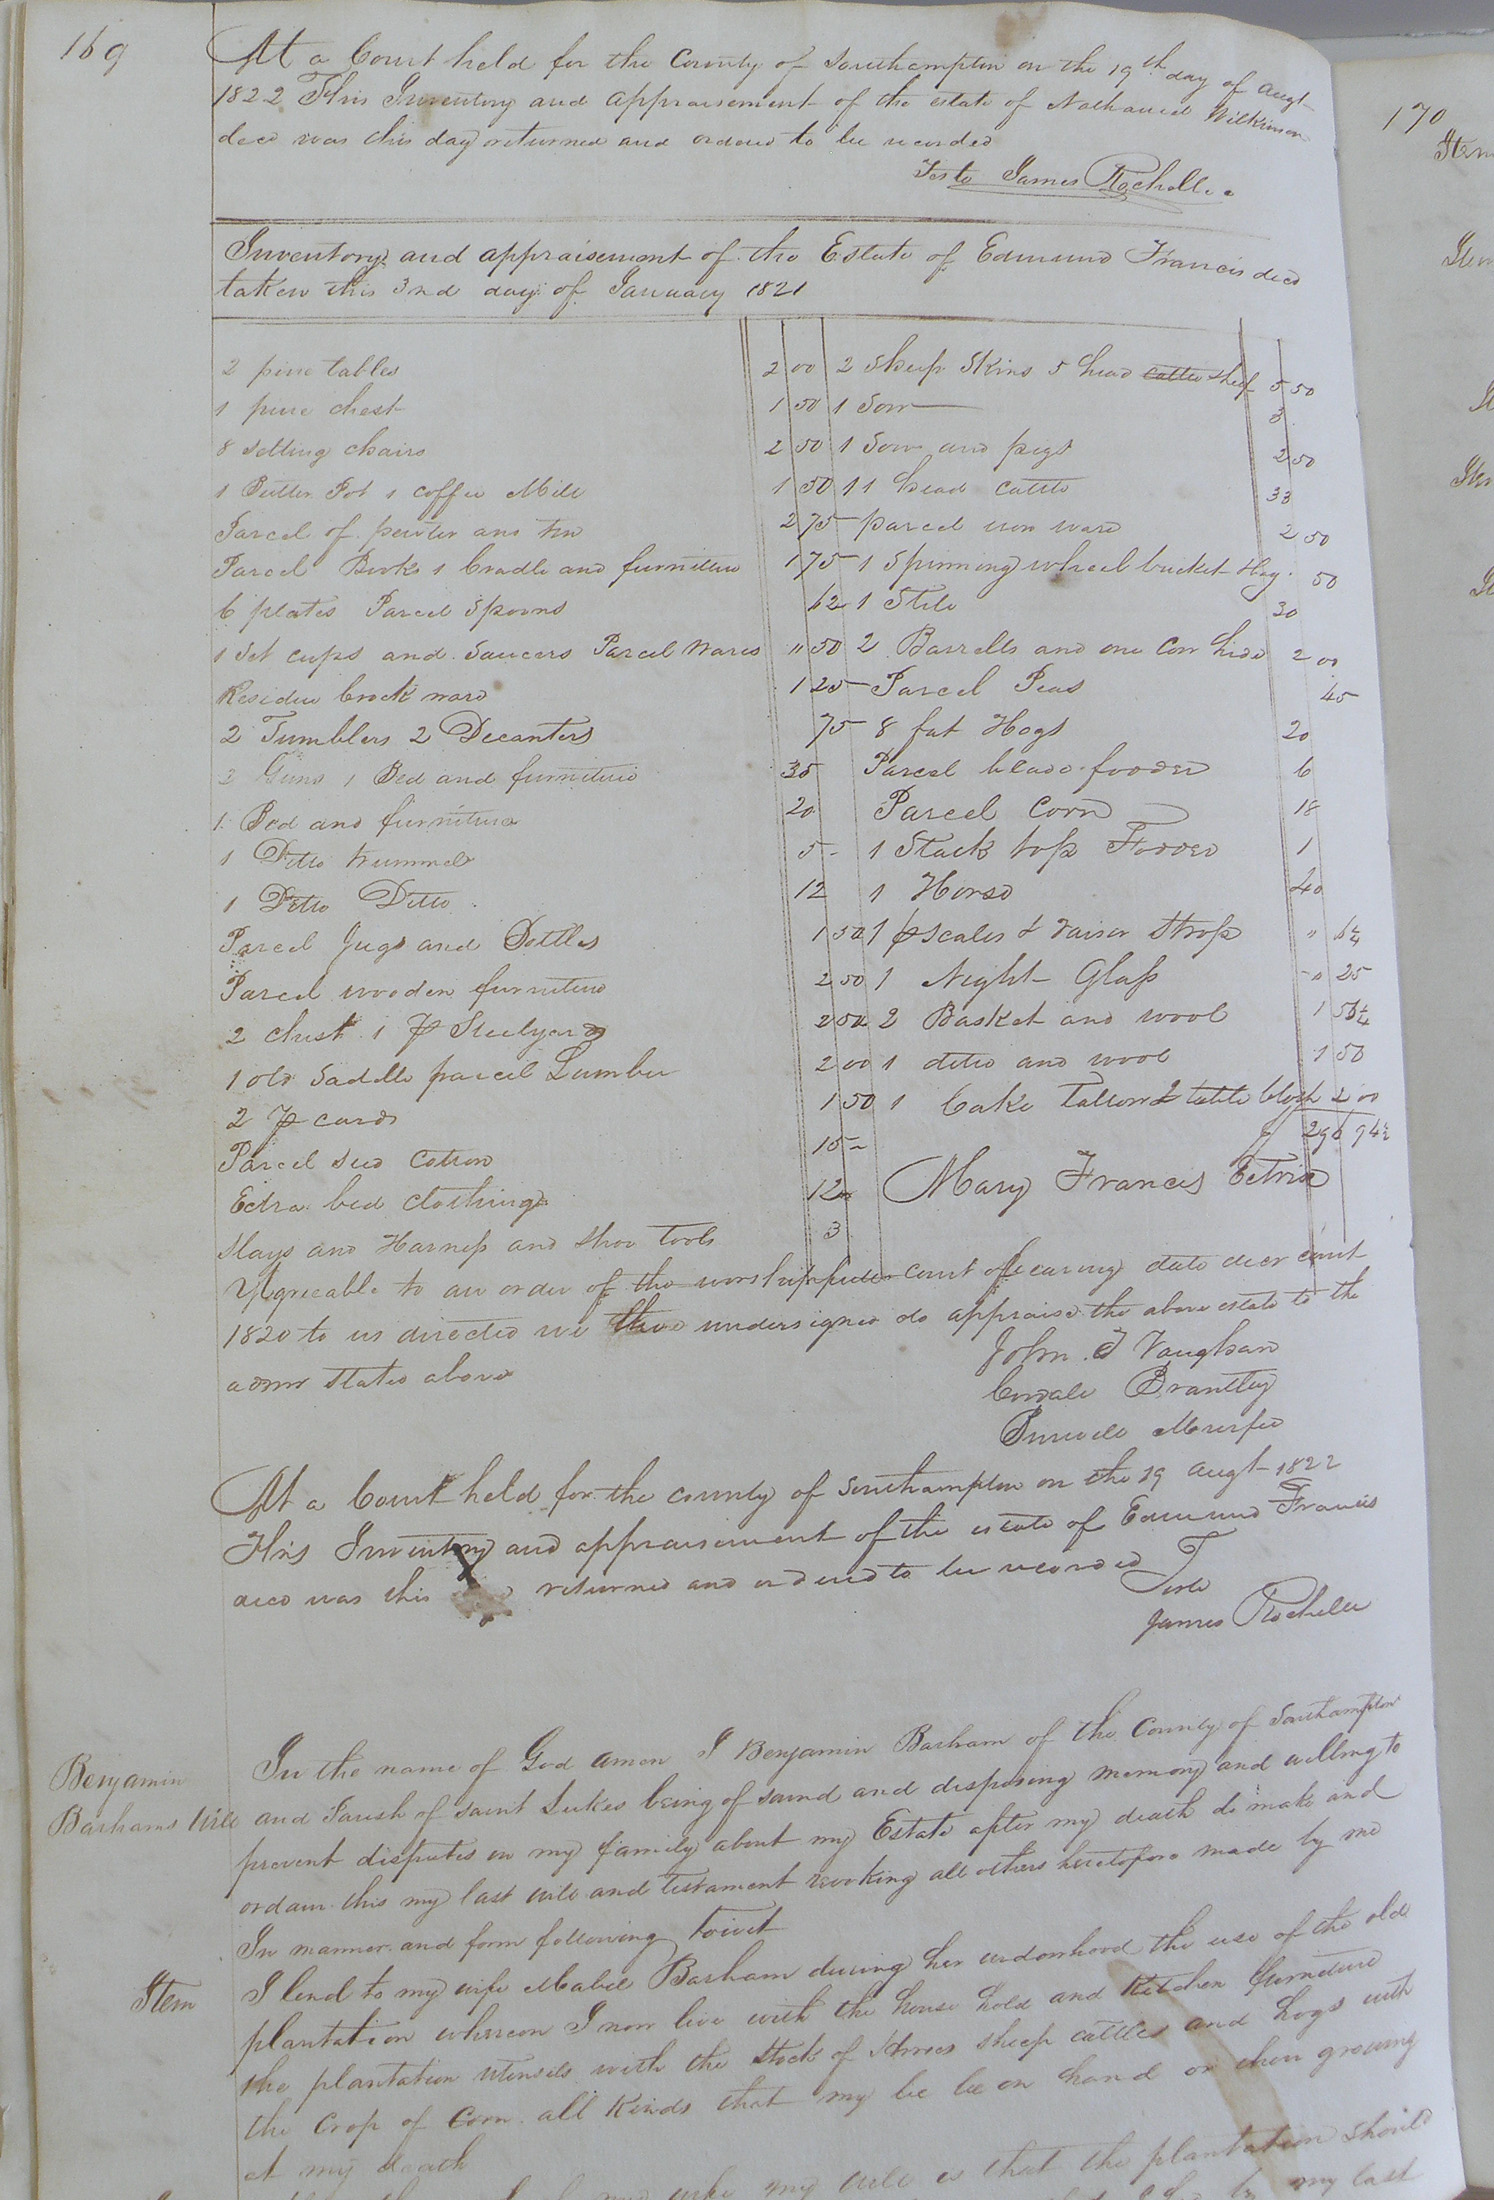 169
At a Court held for the County of Southampton on the 19th day of Augt
1822 This Inventory and appraisement of the estate of Nathaniel Wilkinson
decd was this day returned and ordered to be recorded
Teste James Rochelle
Inventory and appraisement of the Estate of Edmund Francis decd
taken this 3nd day of January 1821
2 pine tables 2 00 2 Sheep Skins 5 head cattle sheep 5 50
1 pine chest 1 50 1 Sow 3
8 setting chairs 2 50 1 Sow and pigs 2 50
1 Butter Pot 1 coffee Mill 1 50 11 head cattle 33
Parcel of pewter and tin 2 75 parcel iron ware 2 50
Parcel Books 1 Cradle and furniture 1 75 1 Spinning wheel bucket &c 50
6 plates Parcel Spoons 62 1 Still 30
1 Set cups and Saucers Parcel wares " 50 2 Barrells and one Cow hide 2 00
Residue Crock ware 1 25 Parcel Peas 45
2 Tumblers 2 Decanters 75 8 fat Hogs 20
2 Guns 1 Bed and furniture 35 Parcel blade fodder 6
1 Bed and furniture 20 Parcel Corn 18
1 Ditto trummel 5 1 Stack top Fodder 1
1 Ditto Ditto 12 1 Horse 40
Parcel Jugs and Bottles 1 50 1 p scales & raisor Strop " 6¼
Parcel wooden furniture 2 50 1 Night Glass " 25
2 chest 1 p Steelyards 2 50 2 Basket and wool 1 56¼
1 old Saddle parcel Lumber 2 00 1 ditto and wool 1 50
2 p cards 1 50 1 Cake Tallow 2 table Cloth 2 00
Parcel seed Cotton 15 296 94½
Extra bed clothing 12 Mary Francis Extrix
Slays and Harness and shoe tools 3
Agreeable to an order of the worshipfull court bearing date decr court
1820 to us directed we the undersigned do appraise the above estate to the
admr stated above
John T Vaughan
Cordall Brantley
Burwell
At a Court held for the county of Southampton on the 19 Augt 1822
This Inventory and appraisement of the estate of Edmund Francis
decd was this returned and ordered to be recorded
Teste
James Rochelle
Benjamin
Barhams Will
In the name of God amen I Benjamin Barham of the County of Southampton
and Parish of saint Lukes being of sound and disposing memory and willing to
prevent disputes in my family about my Estate after my death do make and
ordain this my last will and testament revoking all others heretofore made by me
In manner and form following towit
Item I lend to my wife Mabel Barham during her widowhood the use of the old
plantation whereon I now live with the house hold and Kitchen furniture
the plantation utensils with the Stock of Horses sheep cattles and hogs with
the Crop of Corn all Kinds that my be be on hand or then growing
at my death
wife my will is that the plantation should
by my last
170
Item